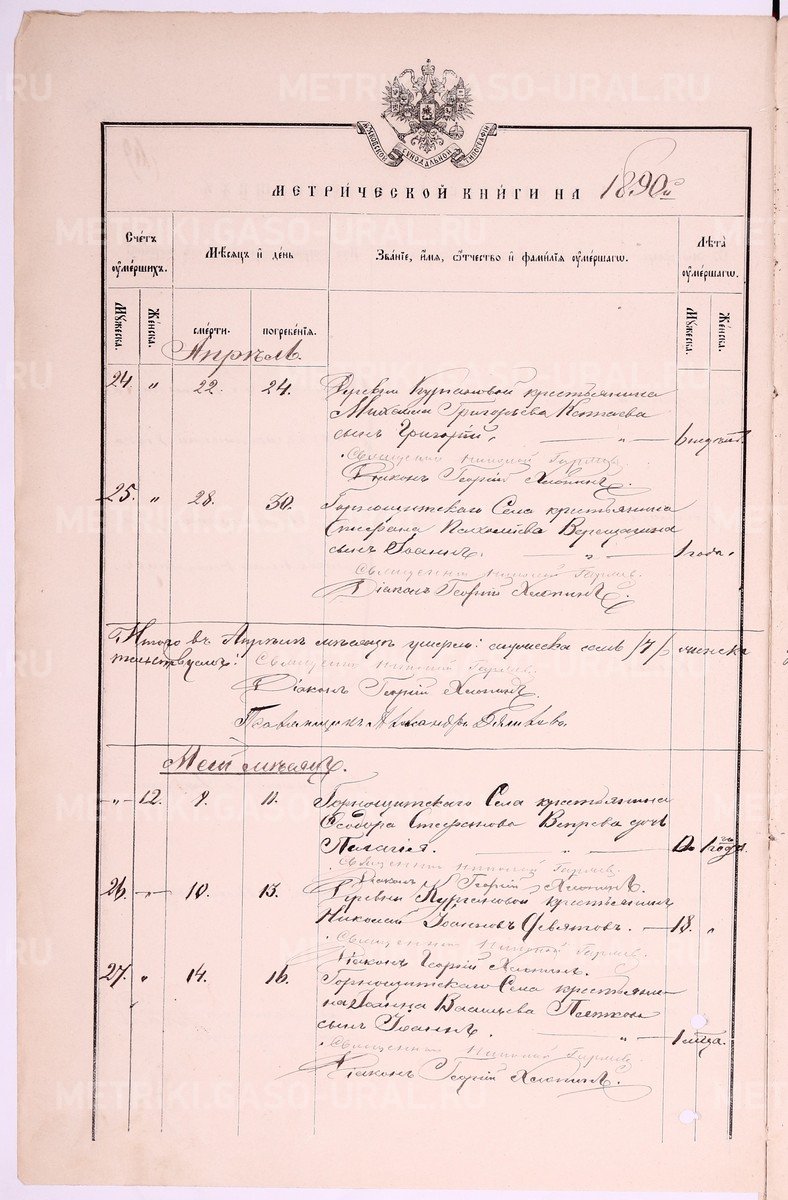 МОСКОВСКОЙ СѴНОДАЛЬНОЙ ТИПОГРАФІИ
МЕТРИЧЕСКОЙ КНИГИ НА 1890й
Счетъ оумершихъ.
Мѣсяцъ и день
Званіе, имя, отчество и фамилія оумершагѡ.
Лѣта оумершагѡ.
Мужеска.
Женска.
смерти.
погребенія.
Мужеска.
Женска.
Апрѣль.
24. " 22. 24. Деревни Кургановой крестьянина
Михаила Григорьева
сынъ Григорій. — " — 6 недѣль.
Священникъ Николай
Діаконъ Георгій Хлопинъ.
25. " 28. 30. Горнощитскаго Села крестьянина
Стефана Верещагина
сынъ Іоаннъ. — " — 1 года.
Священникъ Николай
Діаконъ Георгій Хлопинъ.
Итого въ Апрѣлѣ мѣсяцѣ умерло: мужеска семь /7/ женска
Священникъ Николай
Діаконъ Георгій Хлопинъ.
Псаломщикъ Александръ
Май мѣсяцъ.
" 12. 9. 11. Горнощитскаго Села крестьянина
Ѳеодора Стефанова дочь
Пелагія. — " 1 года.
Священникъ Николай
Діаконъ Георгій Хлопинъ.
26. " 10. 13. Деревни Кургановой крестьянинъ
Николай Іоанновъ Девятовъ. — 18. "
Священникъ Николай
Діаконъ Георгій Хлопинъ.
27. " 14. 16. Горнощитскаго Села крестьяни-
на Іоанна Васильева
сынъ Іоаннъ. — " — 1 мѣсяца.
Священникъ Николай
Діаконъ Георгій Хлопинъ.
METRIKI.GASO-URAL.RU